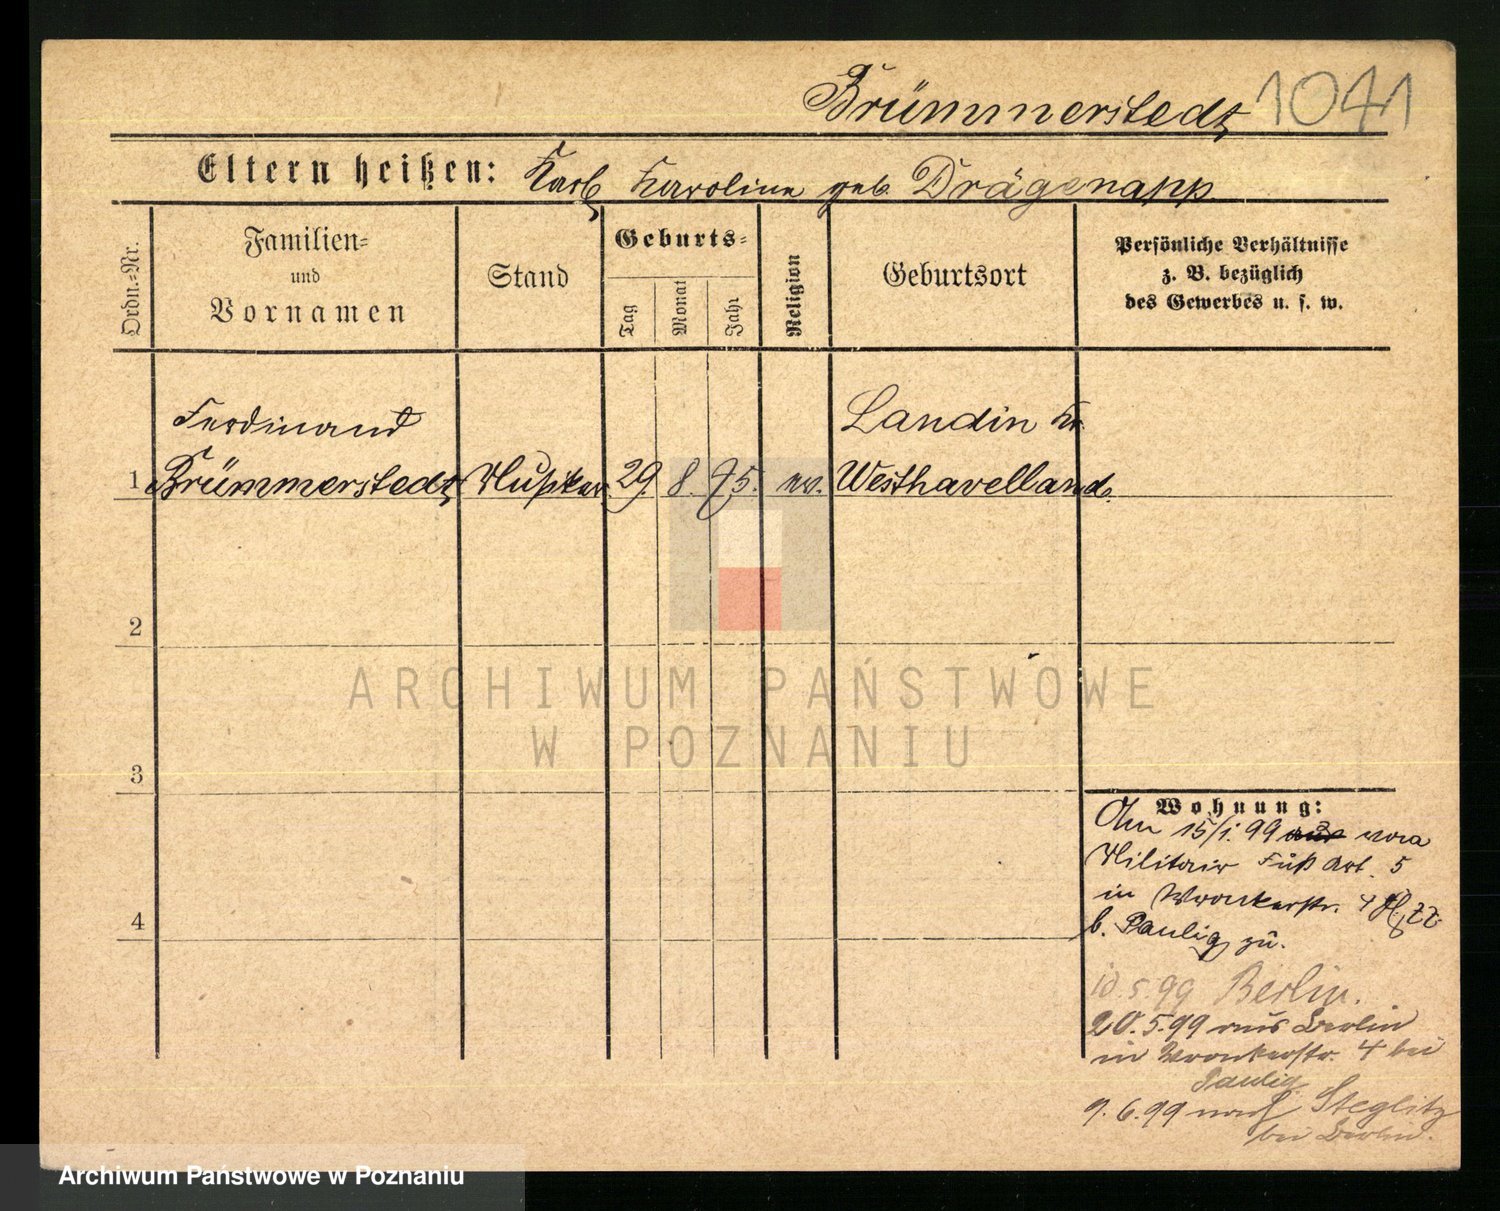 Brümmerstedt 1041
Eltern heißen: Karl Karoline geb. Drägenapp.
Ordn.=Nr.
Familien=
und
Vornamen
Stand
Geburts=
Tag
Monat
Jahr
Religion
Geburtsort
Persönliche Verhältnisse
z. B. bezüglich
des Gewerbes u. s. w.
Ferdinand Landin Kr.
1 Brümmerstedt Musiker 29. 8. 75. ev. Westhavelland.
2
ARCHIWUM PAŃSTWOWE
W POZNANIU
3
4
Wohnung:
Am 15/1. 99 aus vom
Militair Fuß Art. 5
in Wronkerstr. 4
b. Paulig zu.
10.5.99 Berlin.
20.5.99 aus Berlin
in Wronkerstr. 4 bei
Paulig
9.6.99 nach Steglitz
bei Berlin.
Archiwum Państwowe w Poznaniu